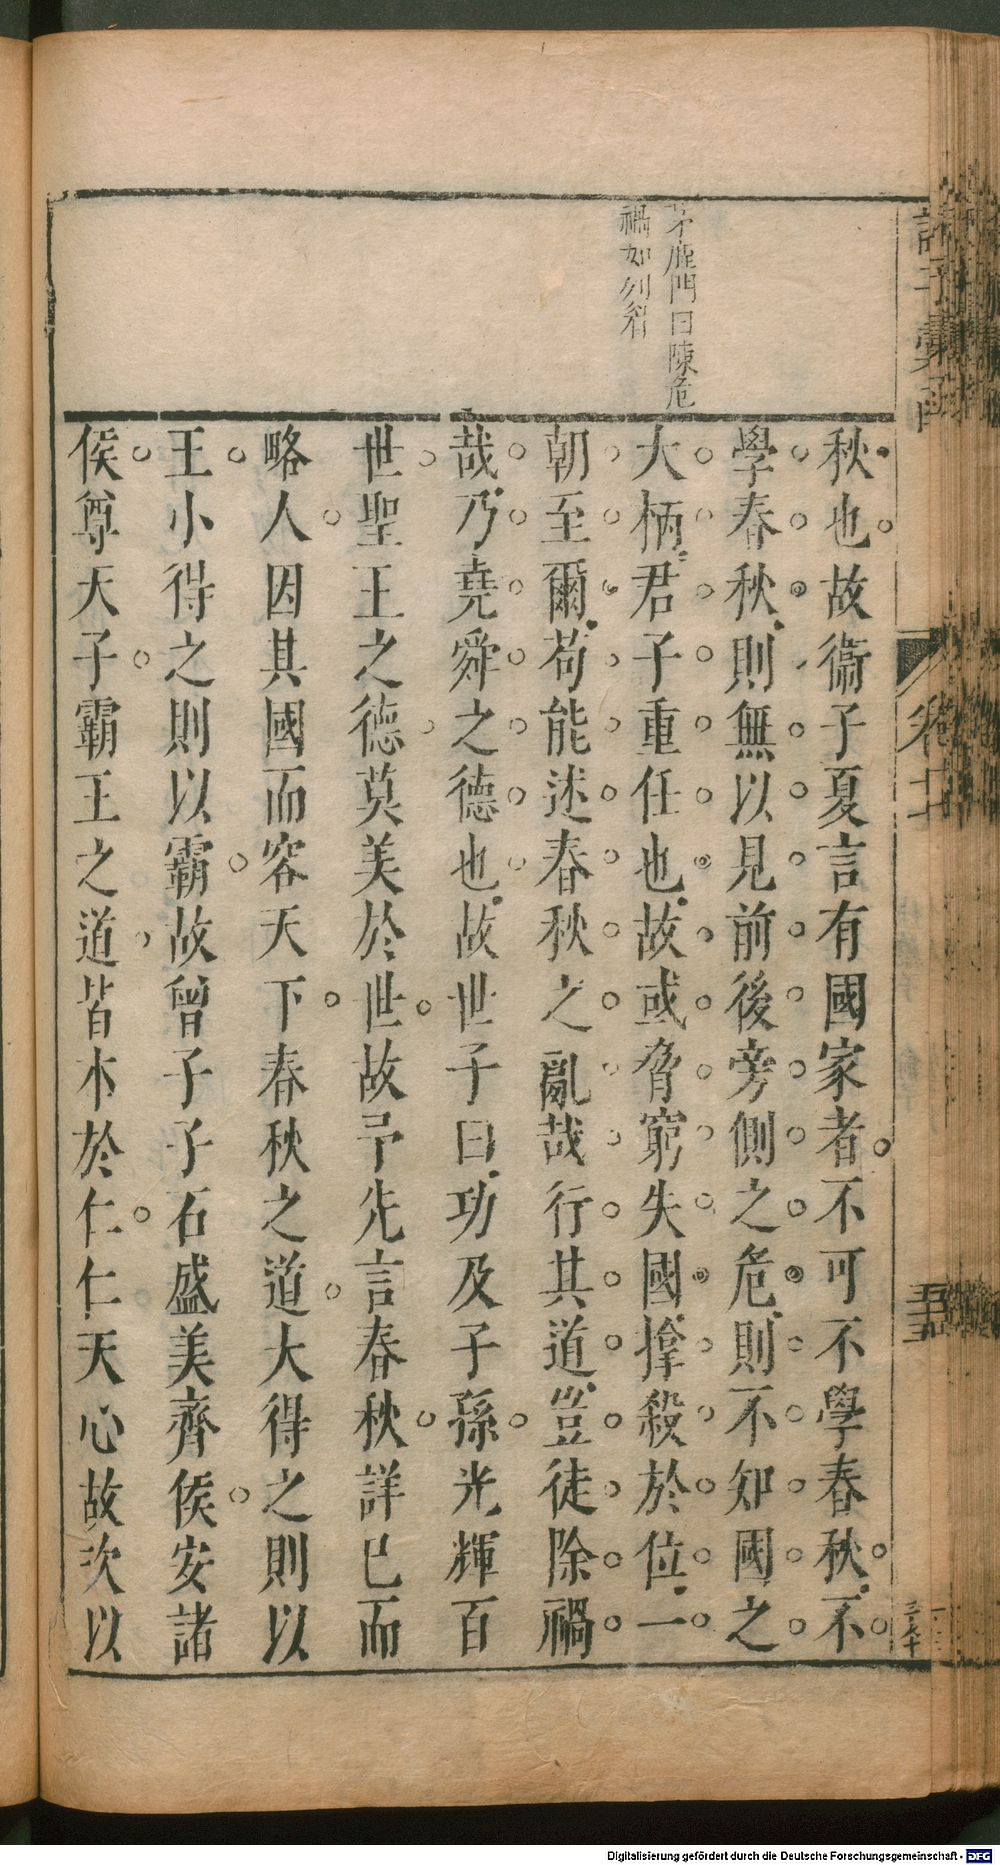 茅鹿門曰陳危
禍如列眉
秋也故衞子夏言有國家者不可不學春秋不
學春秋則無以見前後旁側之危則不知國之
大柄君子重任也故或脅窮失國撑殺於位一
朝至爾苟能述春秋之亂哉行其道豈徒除禍
哉乃堯舜之德也故世子曰功及子孫光輝百
世聖王之德莫美於世故予先言春秋詳已而
略人因其國而容天下春秋之道大得之則以
王小得之則以霸故曾子子石盛美齊侯安諸
侯尊天子霸王之道皆本於仁仁天心故次以
諸子彙函
卷十
Digitalisierung gefördert durch die Deutsche Forschungsgemeinschaft - DFG